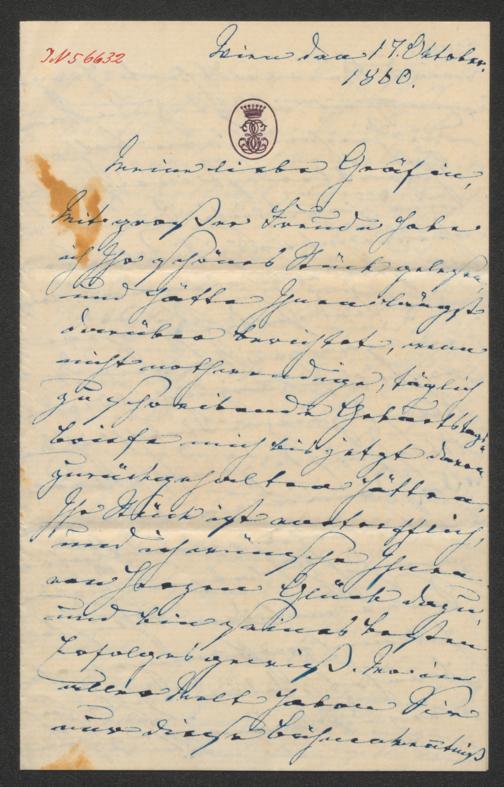 IN 56632
Wien den 17. Oktober.
1880.
Meine liebe Gräfin,
Mit großer Freude habe
ich Ihr schönes Stück gelesen,
und hätte Ihnen längst
darüber berichtet, wenn
nicht nothwendige, täglich
zu schreibende Geburtstags-
briefe mich bis jetzt davon
zurückgehalten hätten.
Ihr Stück ist vortrefflich,
und ich wünsche Ihnen
von Herzen Glück dazu
und bin seines besten
Erfolges gewiß. Wo in
aller Welt haben Sie
nur diese Bühnenkenntniß